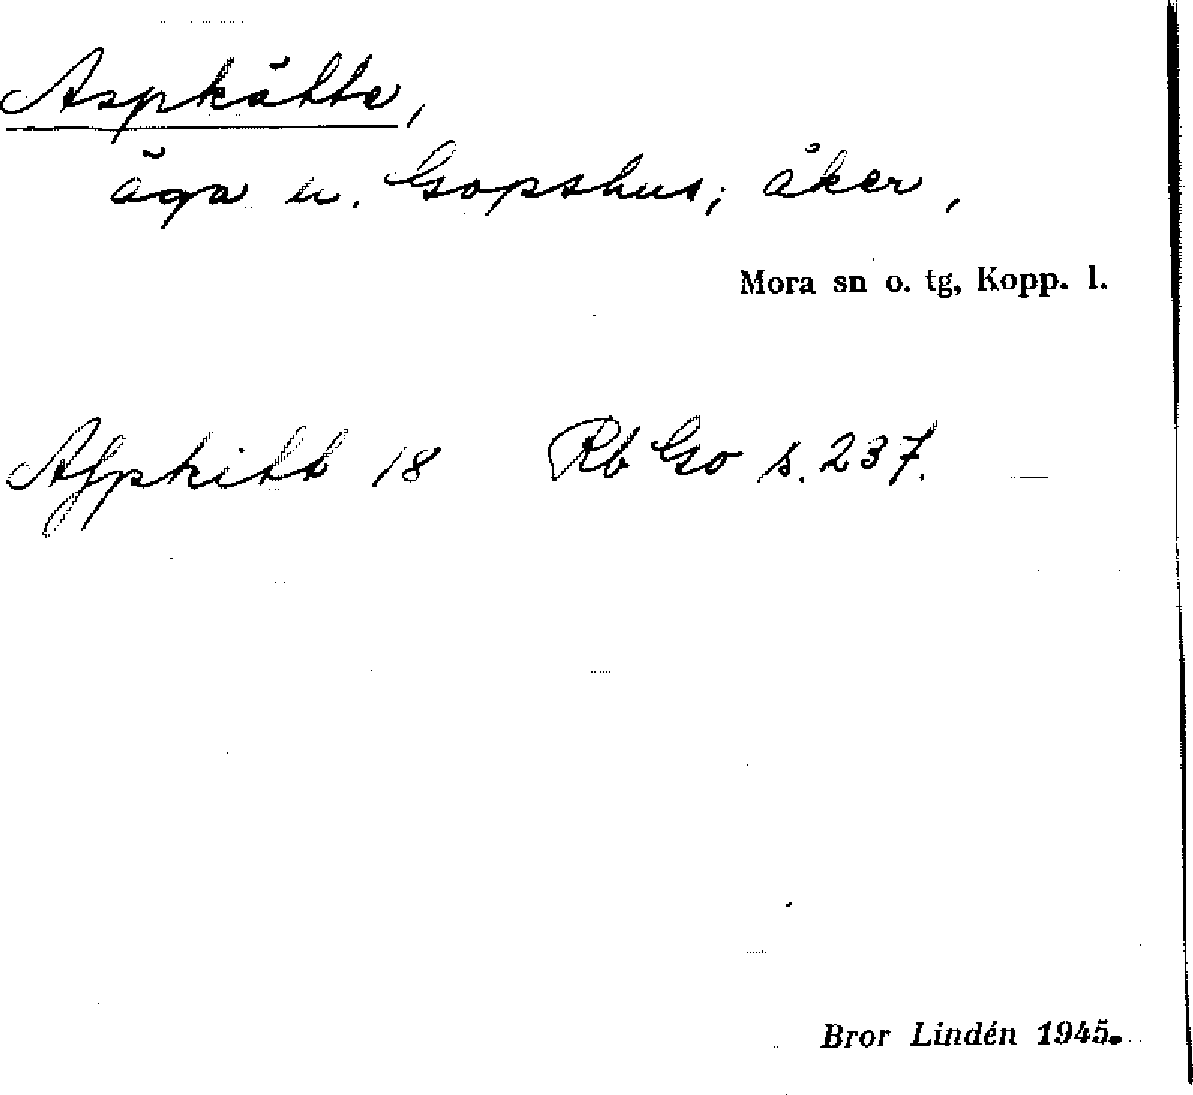 Aspkätte,
äga u. Gopshus; åker,
Mora sn o. tg, Kopp. l.
Afpkitt 18 Rb Go s. 237.
Bror Lindén 1945.